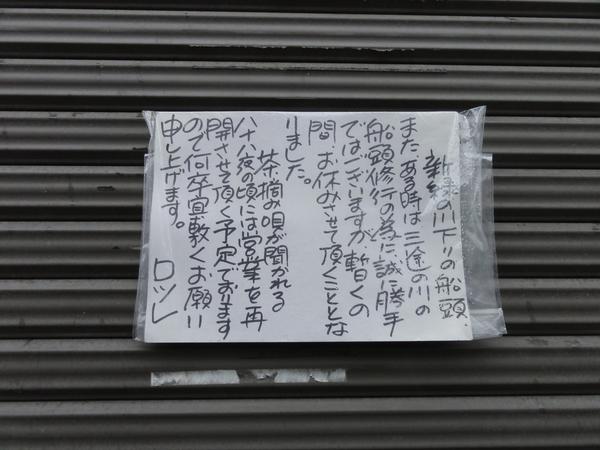 新緑の川下りの船頭
また、ある時は三途の川の
船頭修行の為に誠に勝手
ではございますが、暫くの
間、お休みさせて頂くこととな
りました。
茶摘み唄が聞かれる
八十八夜の頃には営業を再
開させて頂く予定でおります
ので何卒宜敷くお願い
申し上げます。
ロッレ